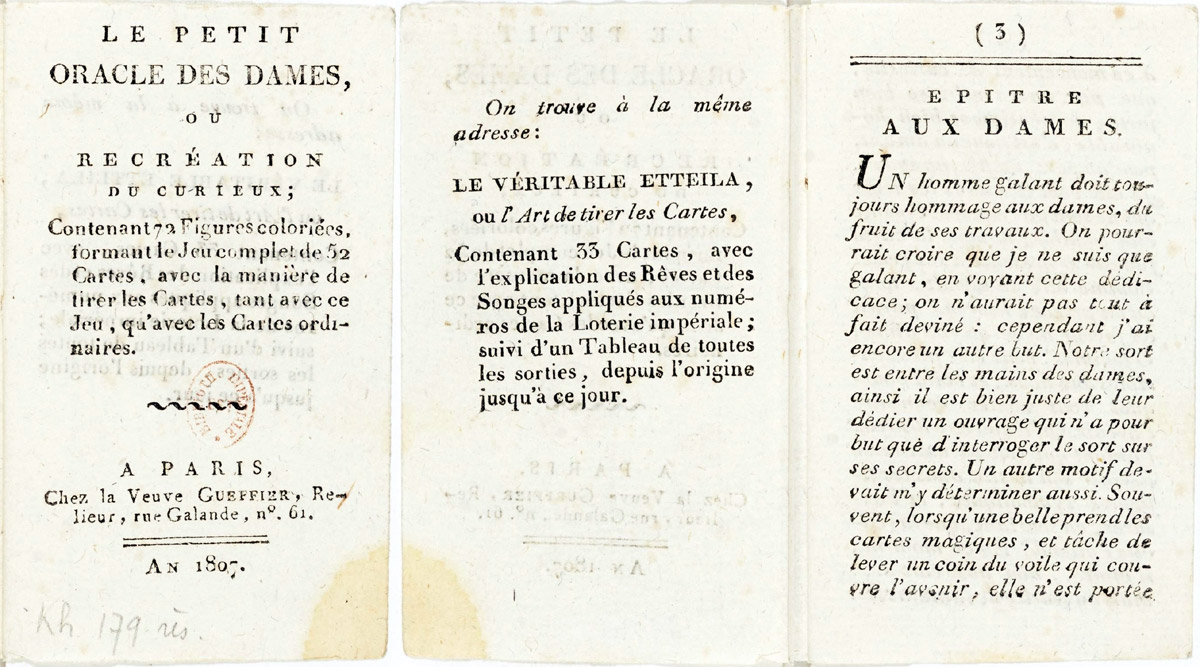 LE PETIT
ORACLE DES DAMES,
OU
RECRÉATION
DU CURIEUX;
Contenant 72 Figures coloriées,
formant le Jeu complet de 52
Cartes, avec la manière de
tirer les Cartes, tant avec ce
Jeu, qu'avec les Cartes ordi-
naires.
A PARIS,
Chez la Veuve GUEFFIER, Re-
lieur, rue Galande, nº. 61.
AN 1807.
Kh 179 rés.
On trouve à la même
adresse:
LE VÉRITABLE ETTEILA,
ou l'Art de tirer les Cartes,
Contenant 33 Cartes, avec
l'explication des Rêves et des
Songes appliqués aux numé-
ros de la Loterie impériale;
suivi d'un Tableau de toutes
les sorties, depuis l'origine
jusqu'à ce jour.
(3)
EPITRE
AUX DAMES.
UN homme galant doit tou-
jours hommage aux dames, du
fruit de ses travaux. On pour-
rait croire que je ne suis que
galant, en voyant cette dédi-
cace; on n'aurait pas tout à
fait deviné : cependant j'ai
encore un autre but. Notre sort
est entre les mains des dames,
ainsi il est bien juste de leur
dédier un ouvrage qui n'a pour
but què d'interroger le sort sur
ses secrets. Un autre motif de-
vait m'y déterminer aussi. Sou-
vent, lorsqu'une belle prend les
cartes magiques, et tâche de
lever un coin du voile qui cou-
vre l'avenir, elle n'est portée